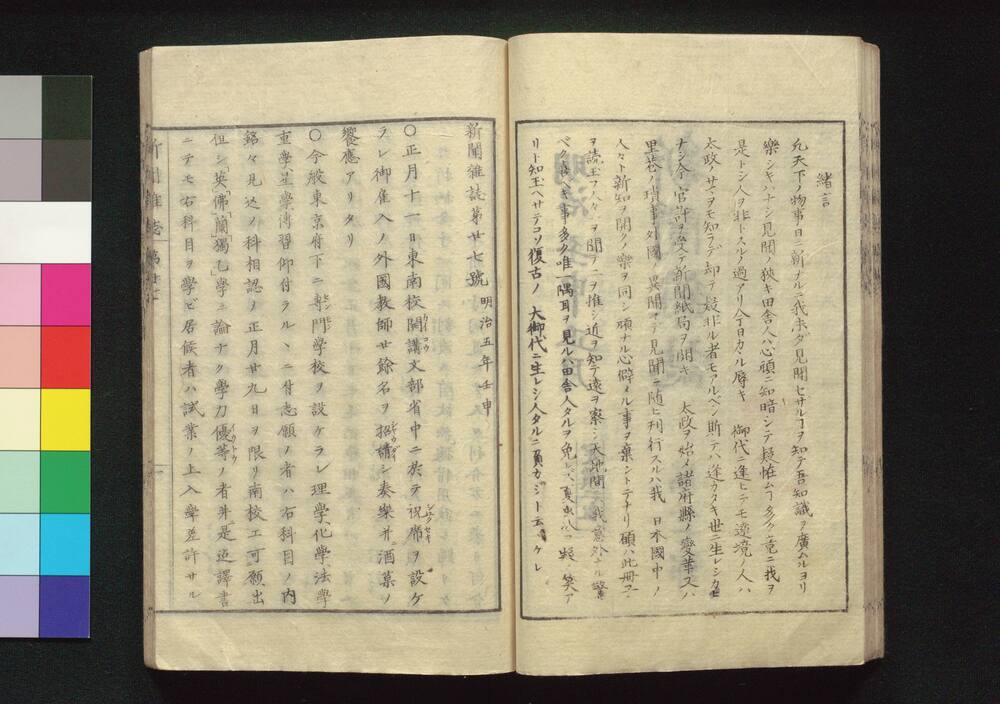 緒言
凢天下ノ物事日ニ新ナルニ我未ダ見聞セサルヿヲ知テ吾知識ヲ廣ムルヨリ
樂シキハナシ見聞ノ狹キ田舎人ハ心頑ニ知暗シテ疑怪ムヿ多ク竟ニ我ヲ
是トシ人ヲ非トスルノ過アリ今日カヽル辱キ 御代ニ逢ヒテモ遠境ノ人ハ
太政ノサマヲモ知ラデ却テ是非ル者モアルベシ斯テハ逢ガタキ世ニ生レシカヒ
ナシ今 官許ヲ受テ新聞紙局ヲ開キ 太政ヲ始メ諸府縣ノ變革又ハ
里巷ノ瑣事外國ノ異聞マテ見聞ニ随ヒ刊行スルハ我 日本國中ノ
人々ト新知ヲ開クノ樂ヲ同シ頑ナル心僻メル事ヲ棄シトテナリ願ハ此冊子
ヲ読玉フ人々一ヲ聞テ二ヲ推シ近ヲ知テ遠ヲ察シ天地間ニハ我意外ナル驚
ベク喜ベキ事多ク唯一隅耳ヲ見ルハ田舎人タルヲ免レズ夏虫ハ氷ヲ疑ヒ笑ア
リト知玉ヘサテコソ復古ノ 大御代ニ生レシ人タルニ負カジト云ベケレ
新聞雜誌第廿七號 明治五年壬申
〇正月十一日東南校開講文部省中ニ於テ祝席ヲ設ケ
ラレ御雇入ノ外國教師廿餘名ヲ招請シ奏樂并酒菓ノ
饗應アリタリ
〇今般東京府下ニ專門學校ヲ設ケラレ理學化學法學
重學星學傳習仰付ラルヽニ付志願ノ者ハ右科目ノ内
銘々見込ノ科相認メ正月廿九日ヲ限リ南校エ可願出
但シ英佛蘭獨乙學ニ論ナク學力優等ノ者并是迄譯書
ニテモ右科目ヲ學ビ居候者ハ試業ノ上入學差許サル
新聞雜誌 第廿七